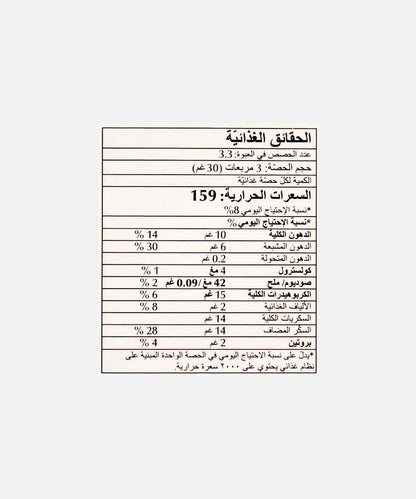 الحقائق الغذائيّة
عدد الحصص في العبوة: 3.3
حجم الحصّة: 3 مربعات (30 غم)
الكمية لكلّ حصّة غذائيّة
السعرات الحرارية: 159
*نسبة الإحتياج اليومي 8%
*نسبة الإحتياج اليومي %
الدهون الكلية 10 غم 14 %
الدهون المشبعة 6 غم 30 %
الدهون المتحولة 0.2 غم
كولسترول 4 مغ 1 %
صوديوم/ ملح 42 مغ /0.09 غم 2 %
الكربوهيدرات الكلية 15 غم 6 %
الألياف الغذائية 2 غم 8 %
السكريات الكلية 14 غم
السكّر المضاف 14 غم 28 %
بروتين 2 غم 4 %
*يدلّ على نسبة الاحتياج اليومي في الحصة الواحدة المبنية على
نظام غذائي يحتوي على ٢٠٠٠ سعرة حرارية.